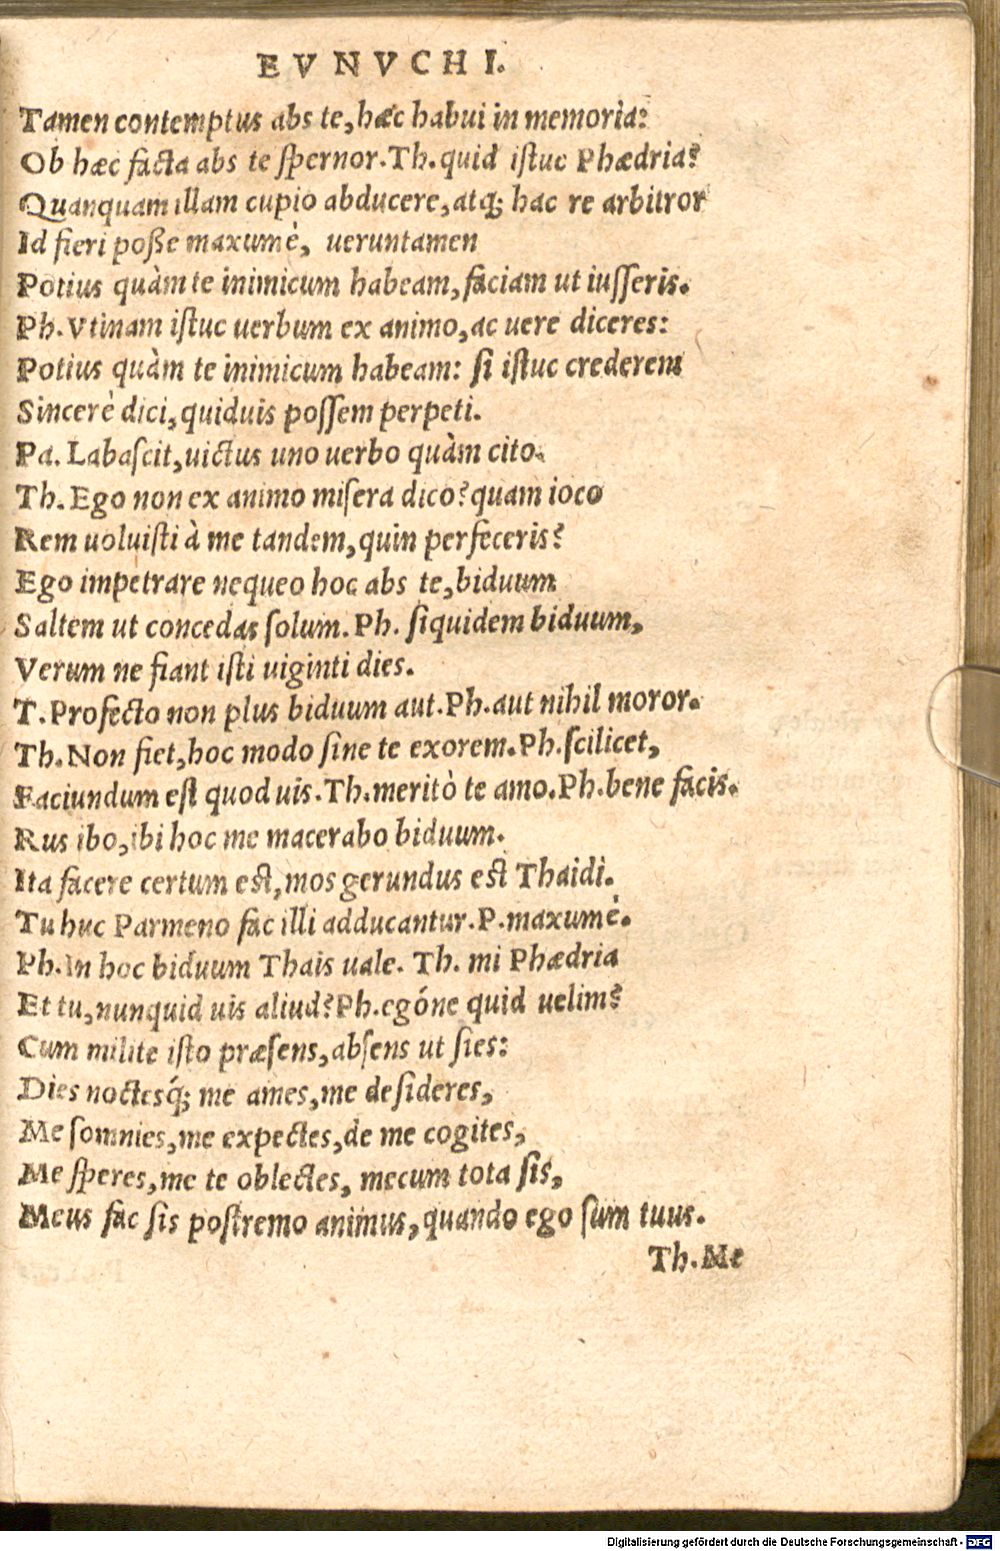 EVNVCHI.
Tamen contemptus abs te, hæc habui in memorìa:
Ob hæc facta abs te spernor. Th. quid istuc Phædria?
Quanquam illam cupio abducere, atq; hac re arbitror
Id fieri posse maxumè, ueruntamen
Potius quàm te inimicum habeam, faciam ut iusseris.
Ph. Vtinam istuc uerbum ex animo, ac uere diceres:
Potius quàm te inimicum habeam: si istuc crederem
Sincerè dici, quiduis possem perpeti.
Pa. Labascit, uictus uno uerbo quàm cito.
Th. Ego non ex animo misera dico? quam ioco
Rem uoluisti à me tandem, quin perfeceris?
Ego impetrare nequeo hoc abs te, biduum
Saltem ut concedas solum. Ph. siquidem biduum,
Verum ne fiant isti uiginti dies.
T. Profecto non plus biduum aut. Ph. aut nihil moror.
Th. Non fiet, hoc modo sine te exorem. Ph. scilicet,
Faciundum est quod uis. Th. meritò te amo. Ph. bene facis.
Rus ibo, ibi hoc me macerabo biduum.
Ita facere certum est, mos gerundus est Thaidi.
Tu huc Parmeno fac illi adducantur. P. maxumè.
Ph. In hoc biduum Thais uale. Th. mi Phædria
Et tu, nunquid uis aliud? Ph. egóne quid uelim?
Cum milite isto præsens, absens ut sies:
Dies noctesq́; me ames, me desideres,
Me somnies, me expectes, de me cogites,
Me speres, me te oblectes, mecum tota sis,
Meus fac sis postremo animus, quando ego sum tuus.
Th. Me
Digitalisierung gefördert durch die Deutsche Forschungsgemeinschaft - DFG